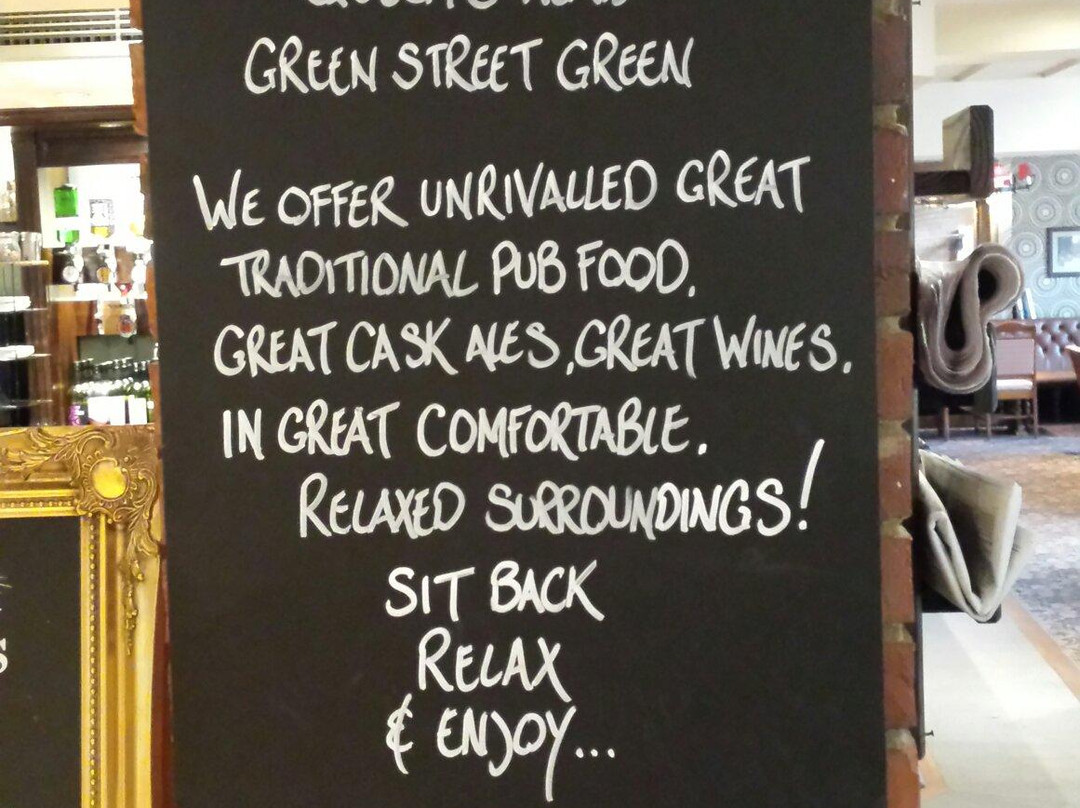 GREEN STREET GREEN
WE OFFER UNRIVALLED GREAT
TRADITIONAL PUB FOOD.
GREAT CASK ALES, GREAT WINES.
IN GREAT COMFORTABLE.
RELAXED SURROUNDINGS!
SIT BACK
RELAX
& ENJOY...
S